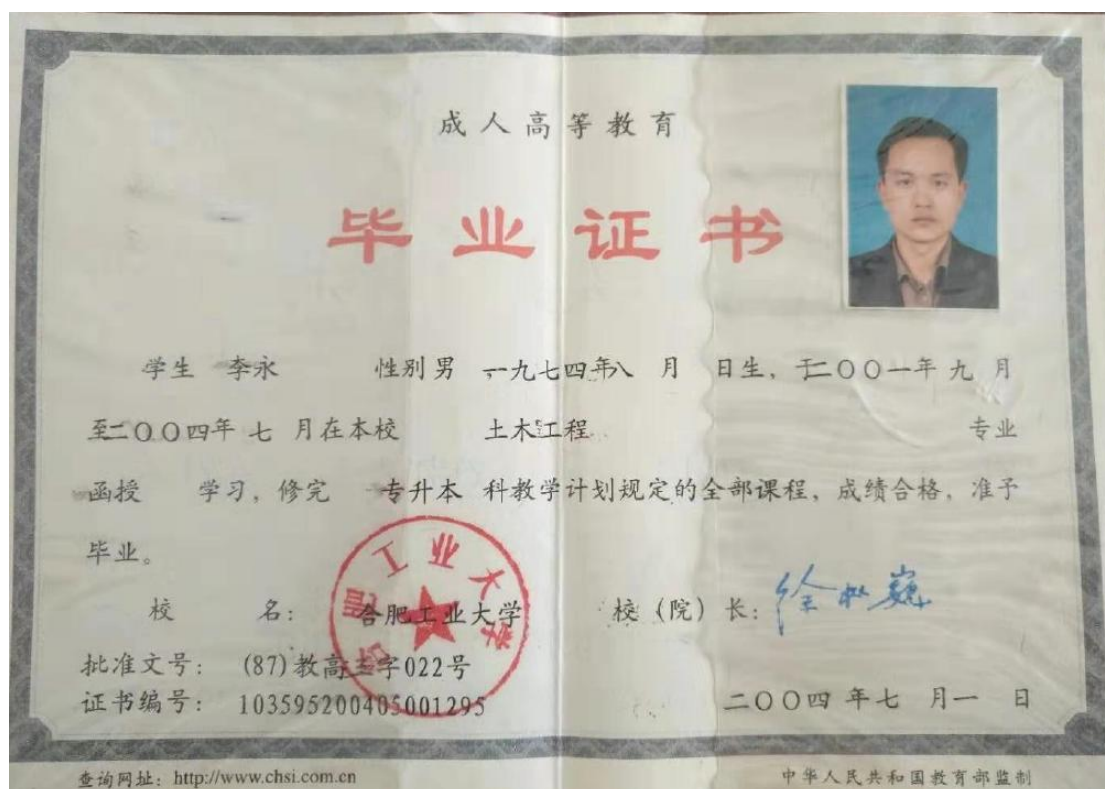 成人高等教育
毕业证书
学生 李永 性别 男 一九七四年八 月 日生，于二〇〇一年 九 月
至二〇〇四年 七 月在本校 土木工程 专业
函授 学习，修完 专升本 科教学计划规定的全部课程，成绩合格，准予
毕业。
校 名： 合肥工业大学 校（院）长：徐枞巍
合肥工业大学
批准文号： (87)教高三字022号
证书编号： 103595200405001295
二〇〇四 年 七 月 一 日
查询网址：http://www.chsi.com.cn 中华人民共和国教育部监制